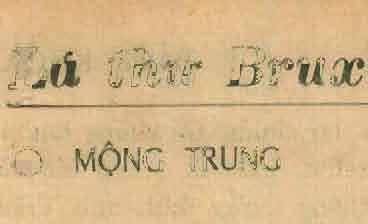 Lá thư Brux
MỘNG TRUNG